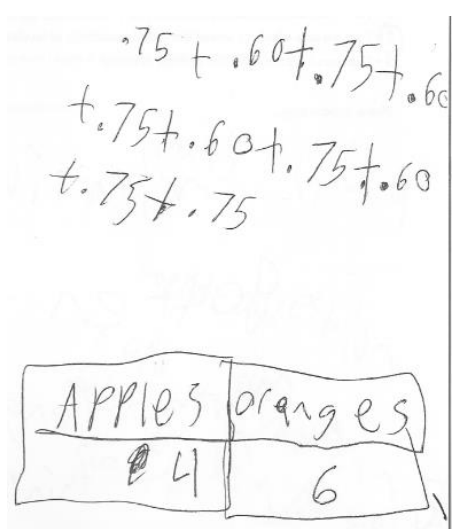 .75 + .60 + .75 + .60
+ .75 + .60 + .75 + .60
+ .75 + .75
Apples oranges
4 6